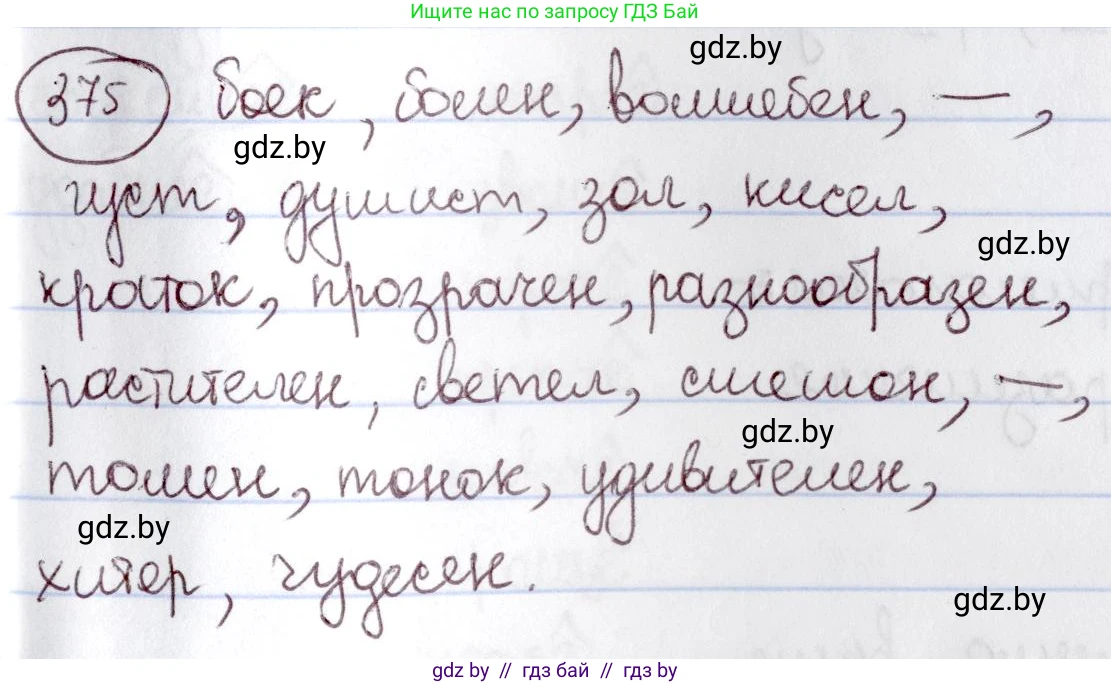 Ищите нас по запросу ГДЗ Бай
gdz.by
375 боек, болен, волшебен, —,
gdz.by
густ, душист, зол, кисел,
gdz.by
краток, прозрачен, разнообразен,
растителен, светел, смешон, —,
gdz.by
томен, тонок, удивителен,
gdz.by
хитер, чудесен.
gdz.by
gdz.by // гдз бай // гдз by